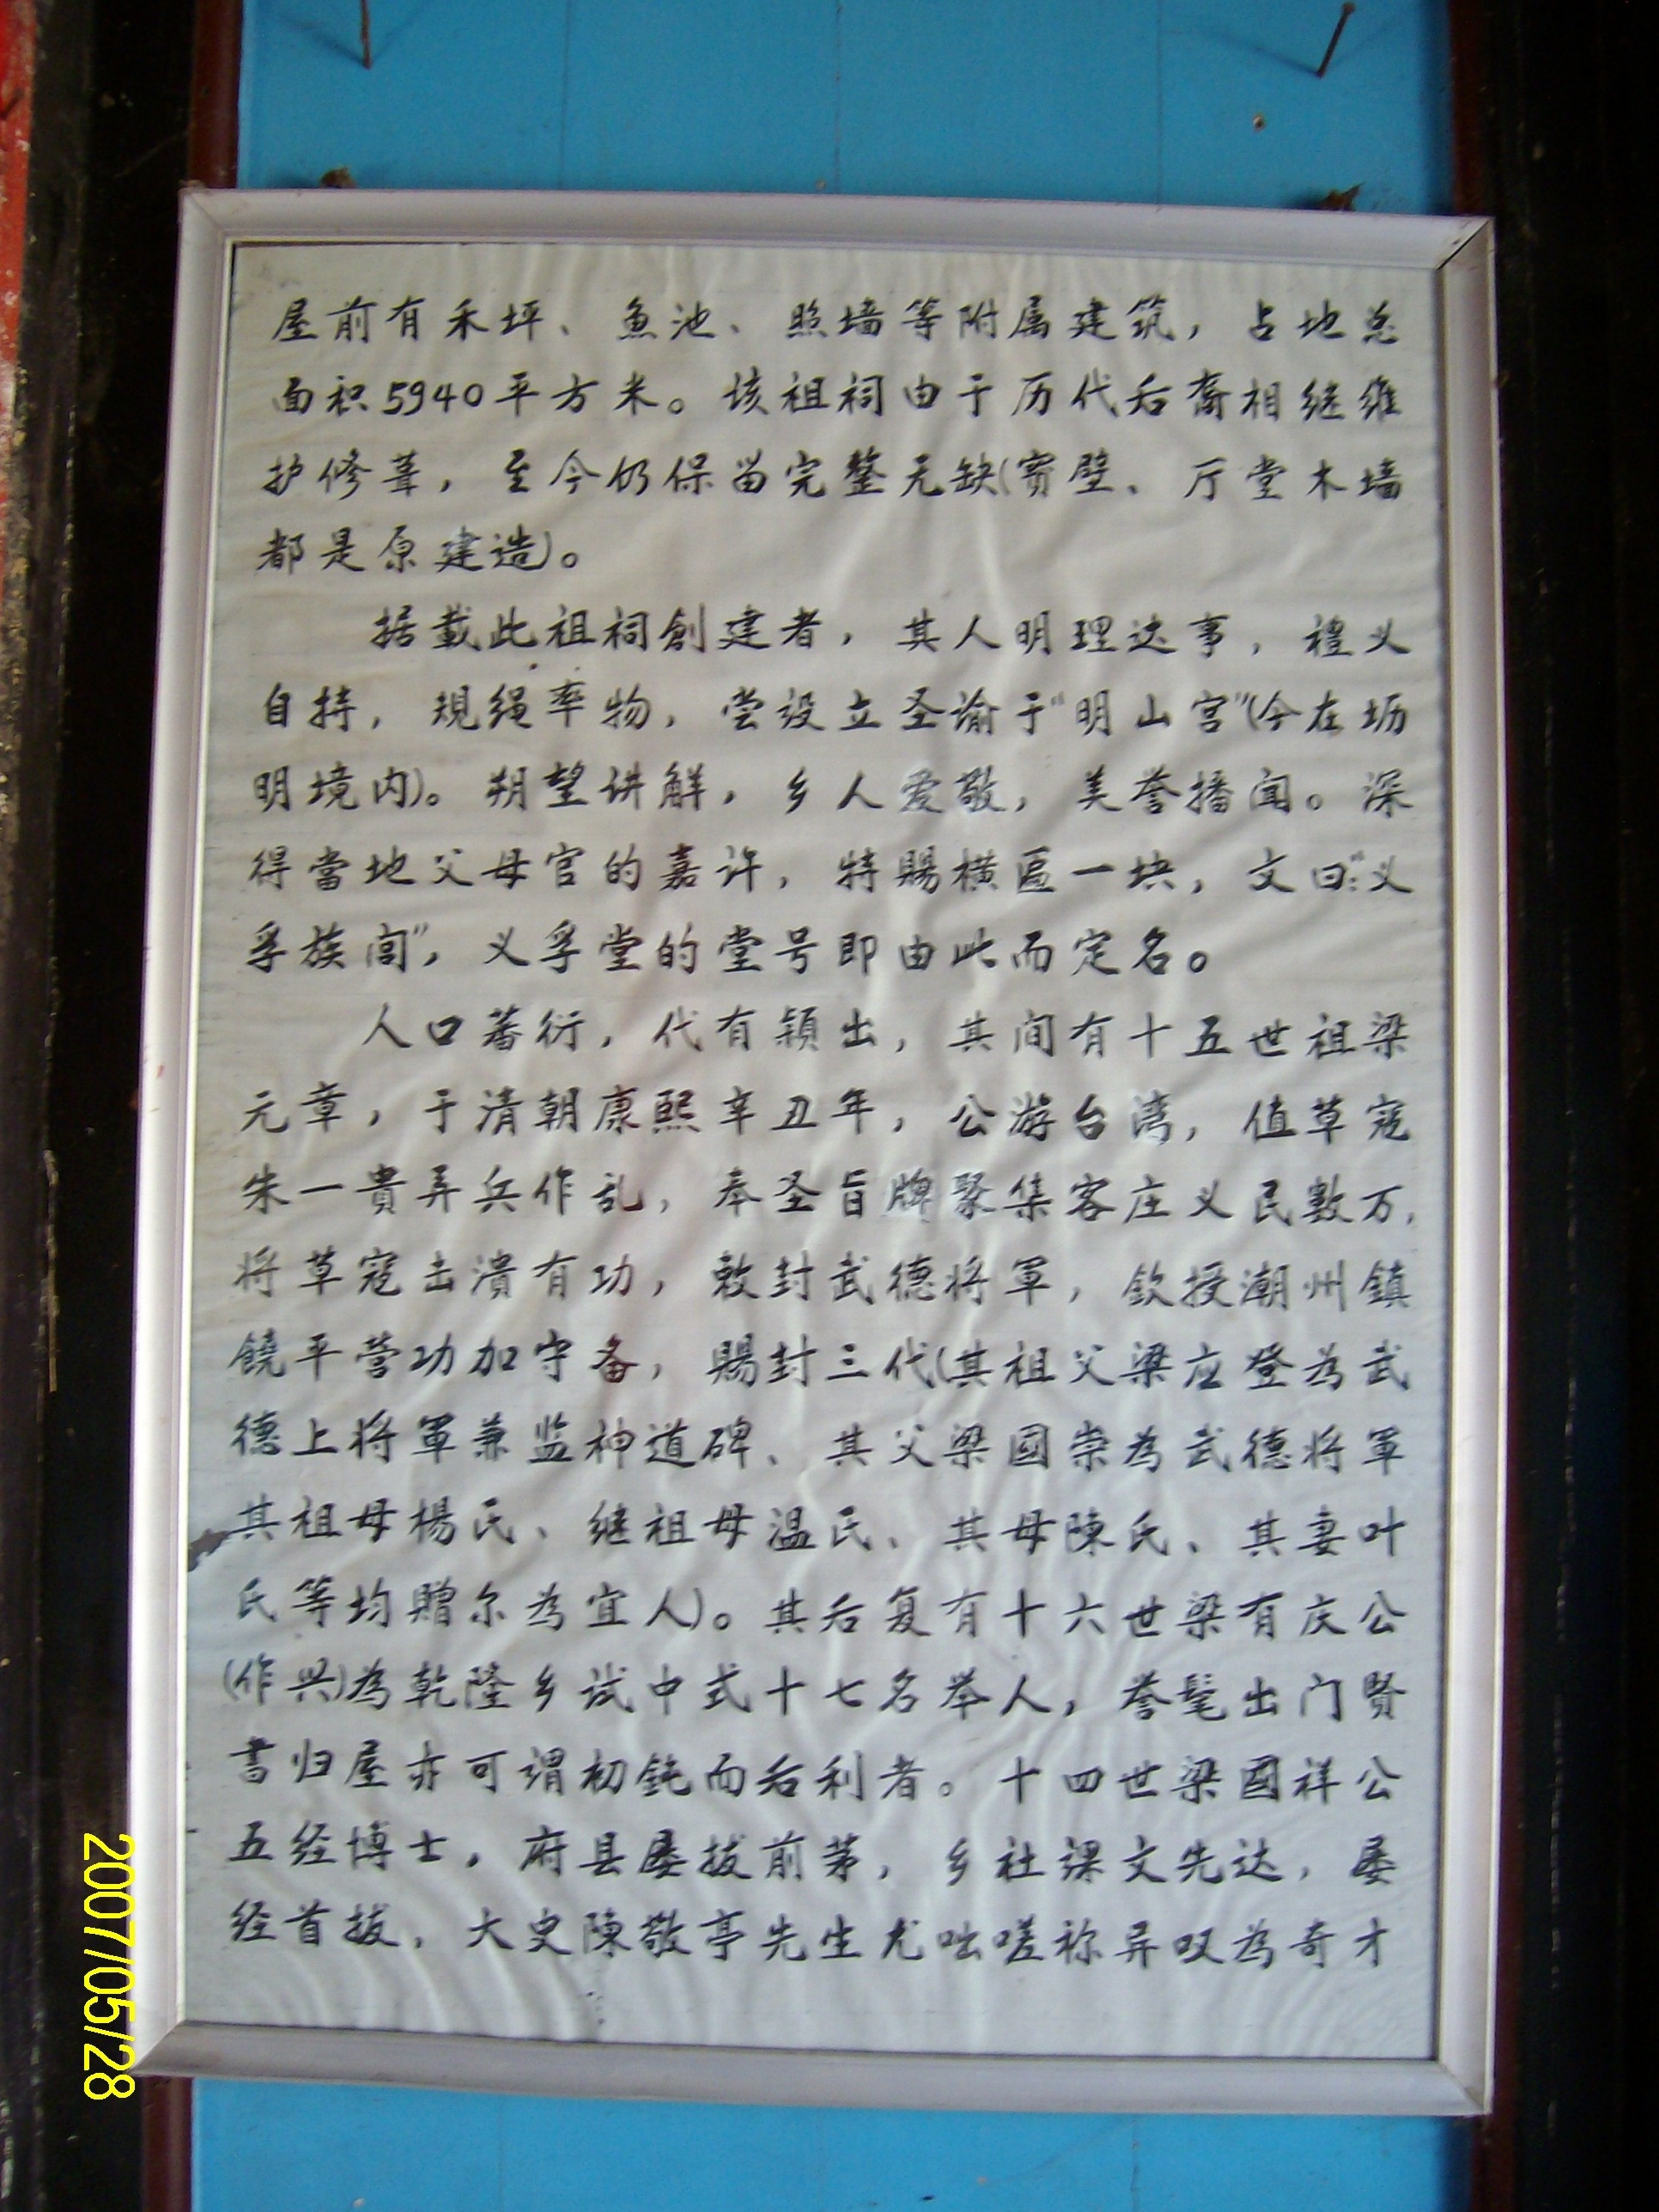 屋前有禾坪、魚池、照墙等附属建筑，占地总
面积5940平方米。该祖祠由于历代后裔相继维
护修葺，至今仍保留完整无缺(窗壁、厅堂木墙
都是原建造)。
据載此祖祠創建者，其人明理达事，禮义
自持，規绳率物，尝设立圣谕于“明山宫”(今在坜
明境内)。朔望讲解，乡人爱敬，美誉播闻。深
得當地父母官的嘉许，特賜横匾一块，文曰：“义
孚族闾”，义孚堂的堂号即由此而定名。
人口蕃衍，代有穎出，其间有十五世祖梁
元章，于清朝康熙辛丑年，公游台湾，值草寇
朱一貴弄兵作乱，奉圣旨牌聚集客庄义民數万，
将草寇击潰有功，敕封武德将軍，欽授潮州鎮
饒平营功加守备，賜封三代(其祖父梁应登為武
德上将軍兼监神道碑、其父梁國崇為武德将軍
其祖母楊氏、继祖母温氏、其母陳氏、其妻叶
氏等均贈尔為宜人)。其后复有十六世梁有庆公
(作兴)為乾隆乡试中式十七名举人，誉髦出门賢
書归屋亦可谓初鈍而后利者。十四世梁國祥公
五经博士，府县屡拔前茅，乡社课文先达，屡
经首拔，大史陳敬亭先生尤咄嗟称异叹為奇才
2007/05/28